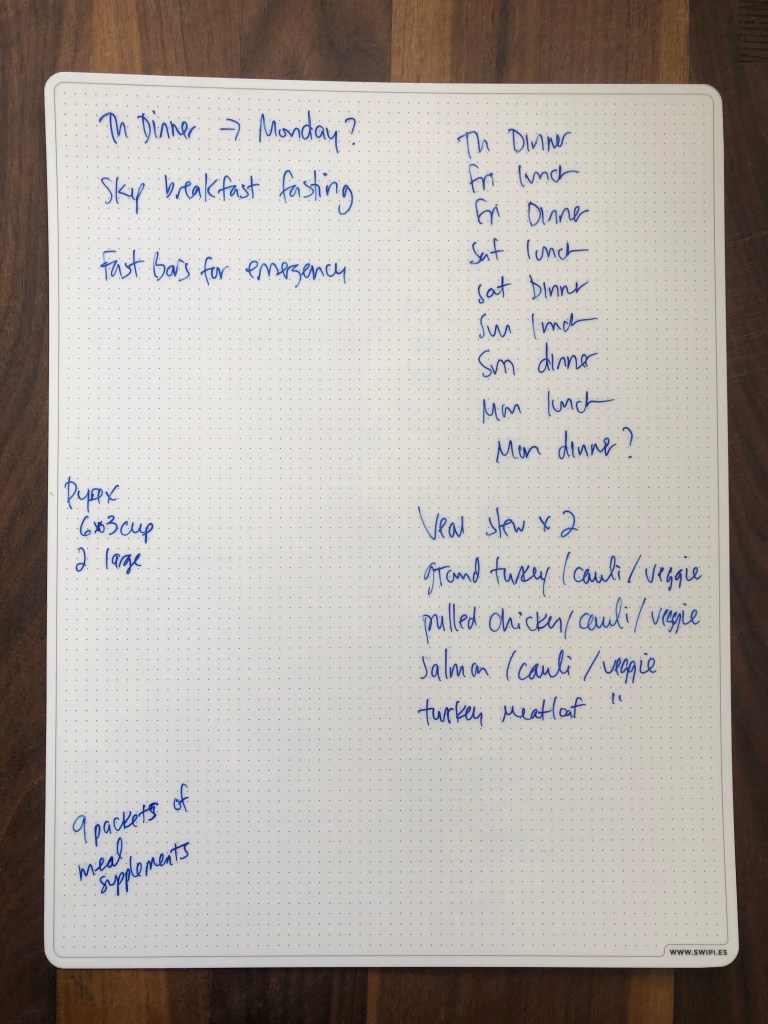 Th Dinner → Monday?
Skip breakfast fasting
Fast Bars for emergency
Th Dinner
Fri lunch
Fri Dinner
Sat lunch
Sat Dinner
Sun lunch
Sun dinner
Mon lunch
Mon dinner?
Pyrex
6x3cup
2 large
Veal stew x 2
ground turkey / cauli / veggie
pulled chicken / cauli / veggie
salmon / cauli / veggie
turkey meatloaf "
9 packets of
meal
supplements
WWW.SWIPI.ES